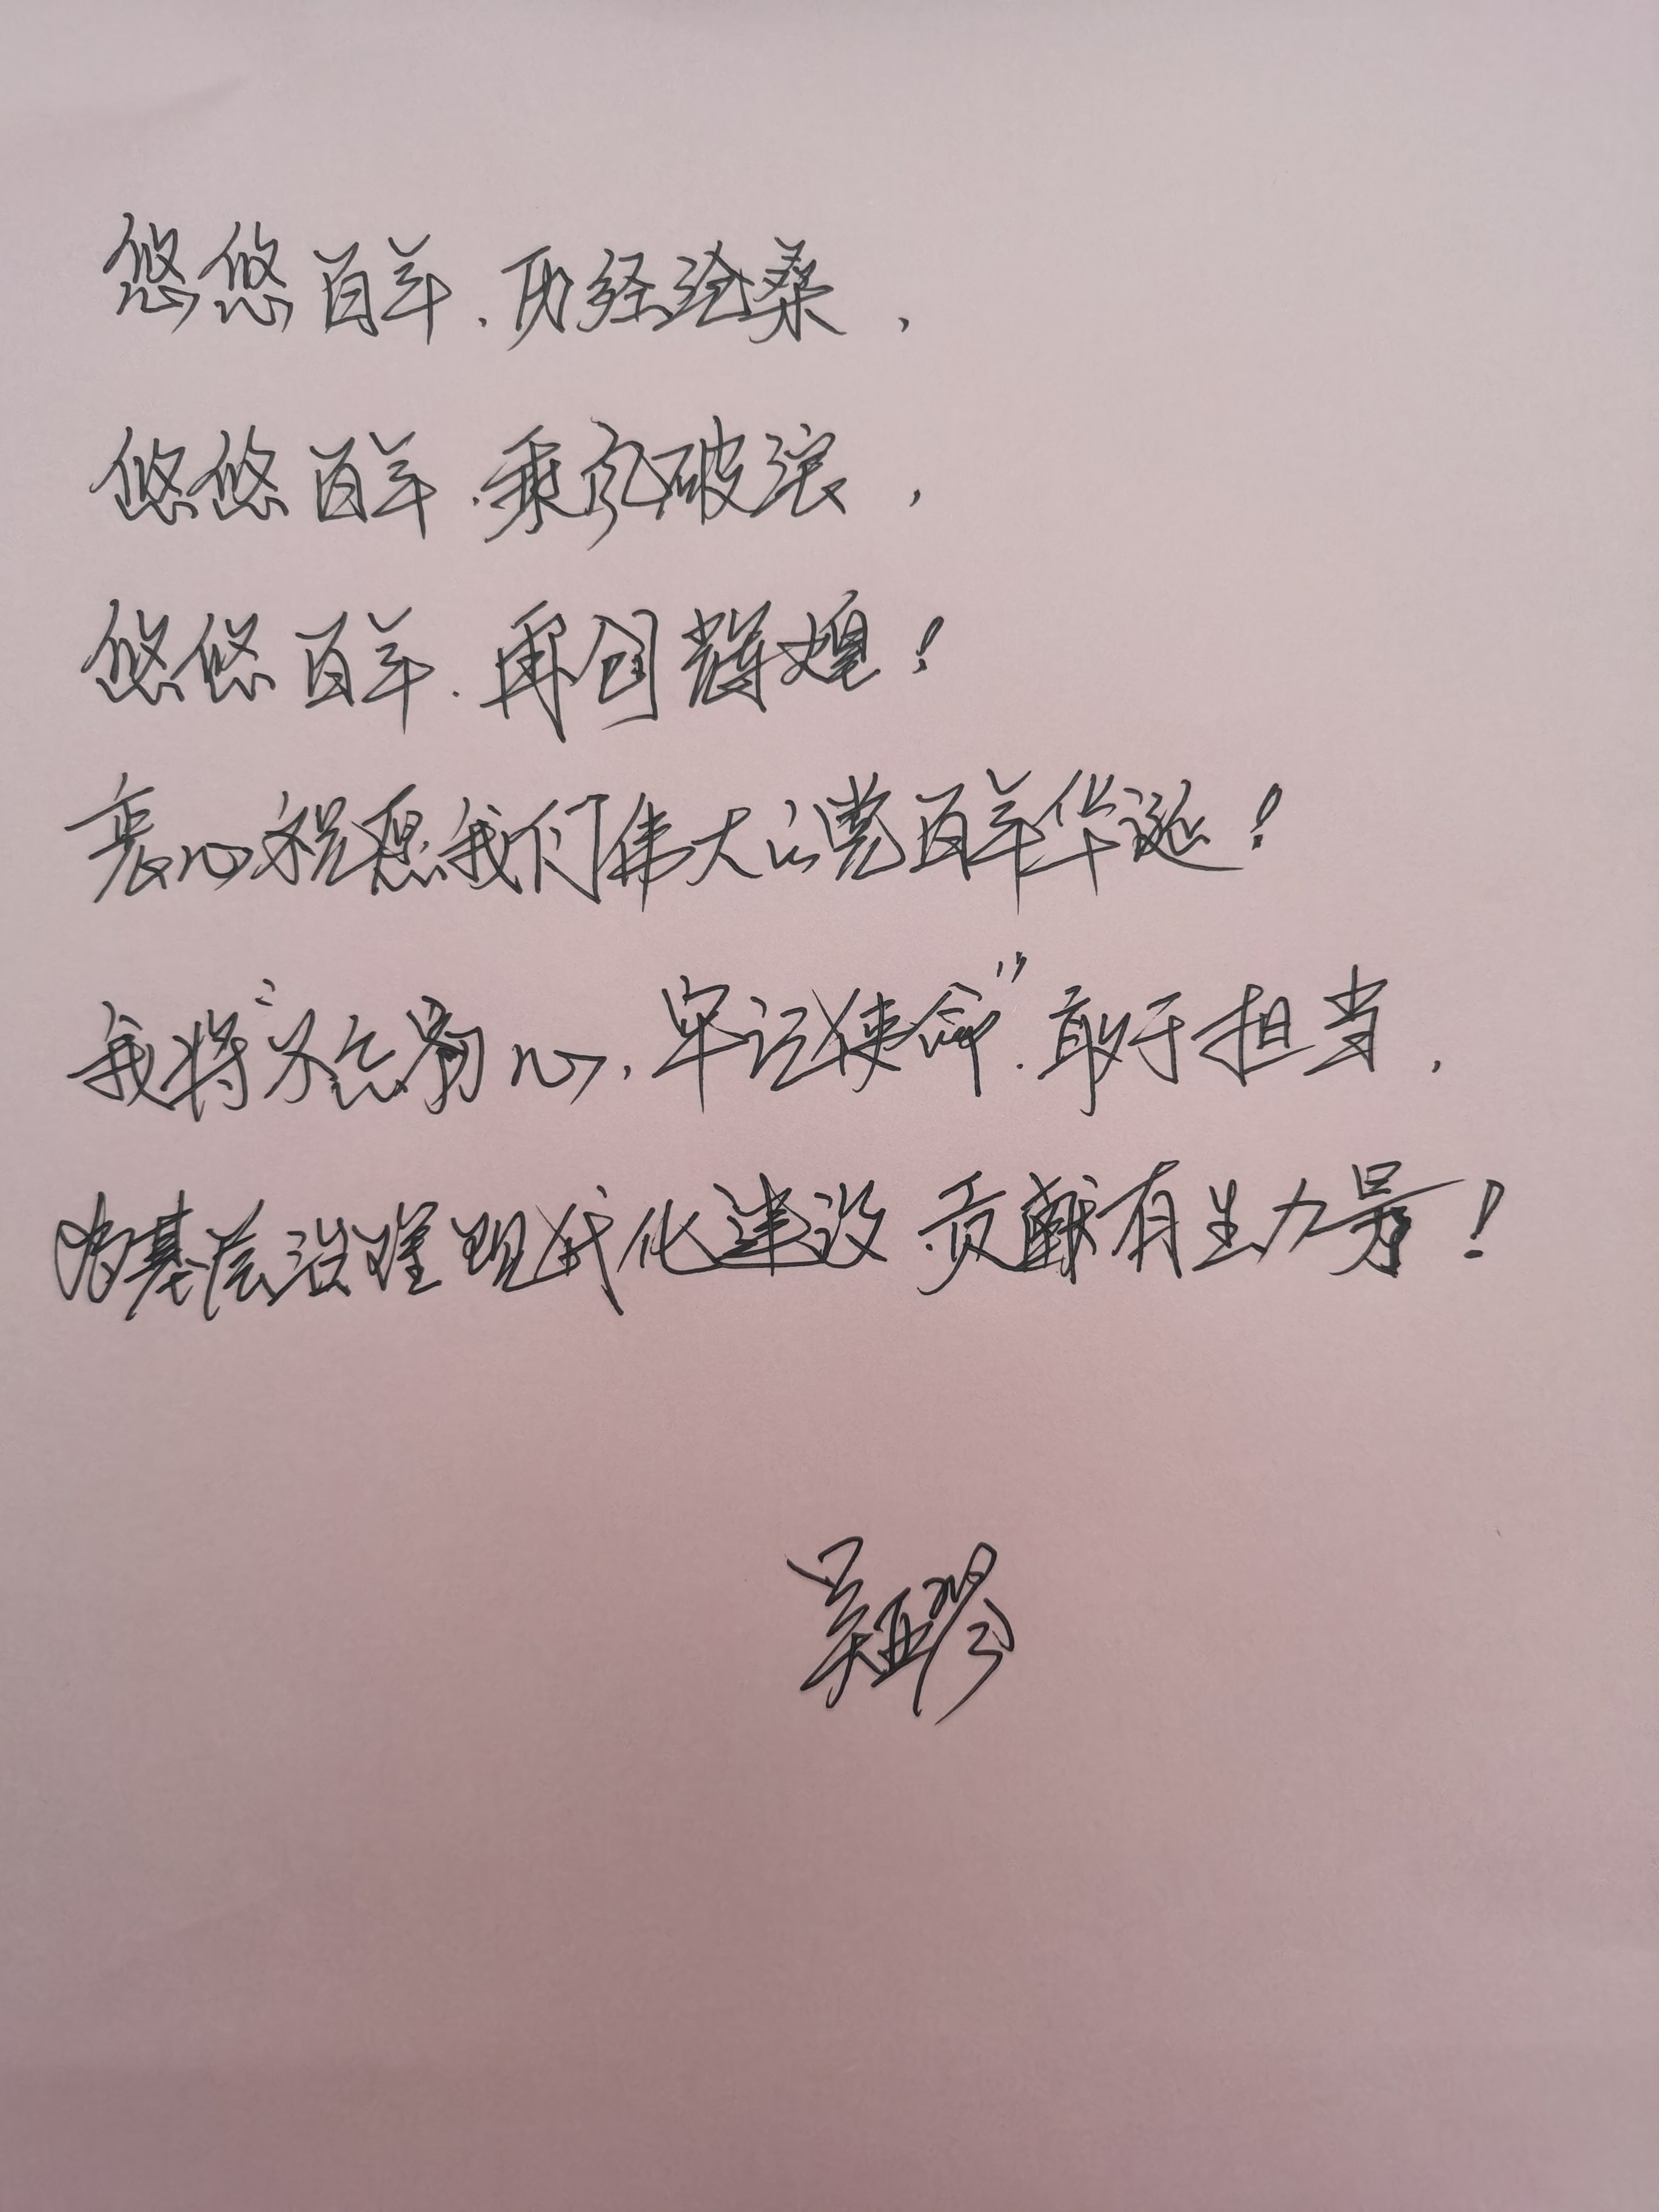 悠悠百年,历经沧桑,
悠悠百年,乘风破浪,
悠悠百年,再创辉煌!
衷心祝愿我们伟大的党百年华诞!
我将“不忘初心,牢记使命”,敢于担当,
为基层治理现代化建设贡献有生力量!
吴亚